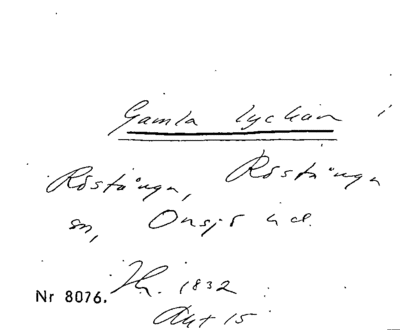 Gamla lyckan i
Röstånga, Röstånga
sn, Onsjö hd.
Nr 8076. Th. 1832
Akt 15